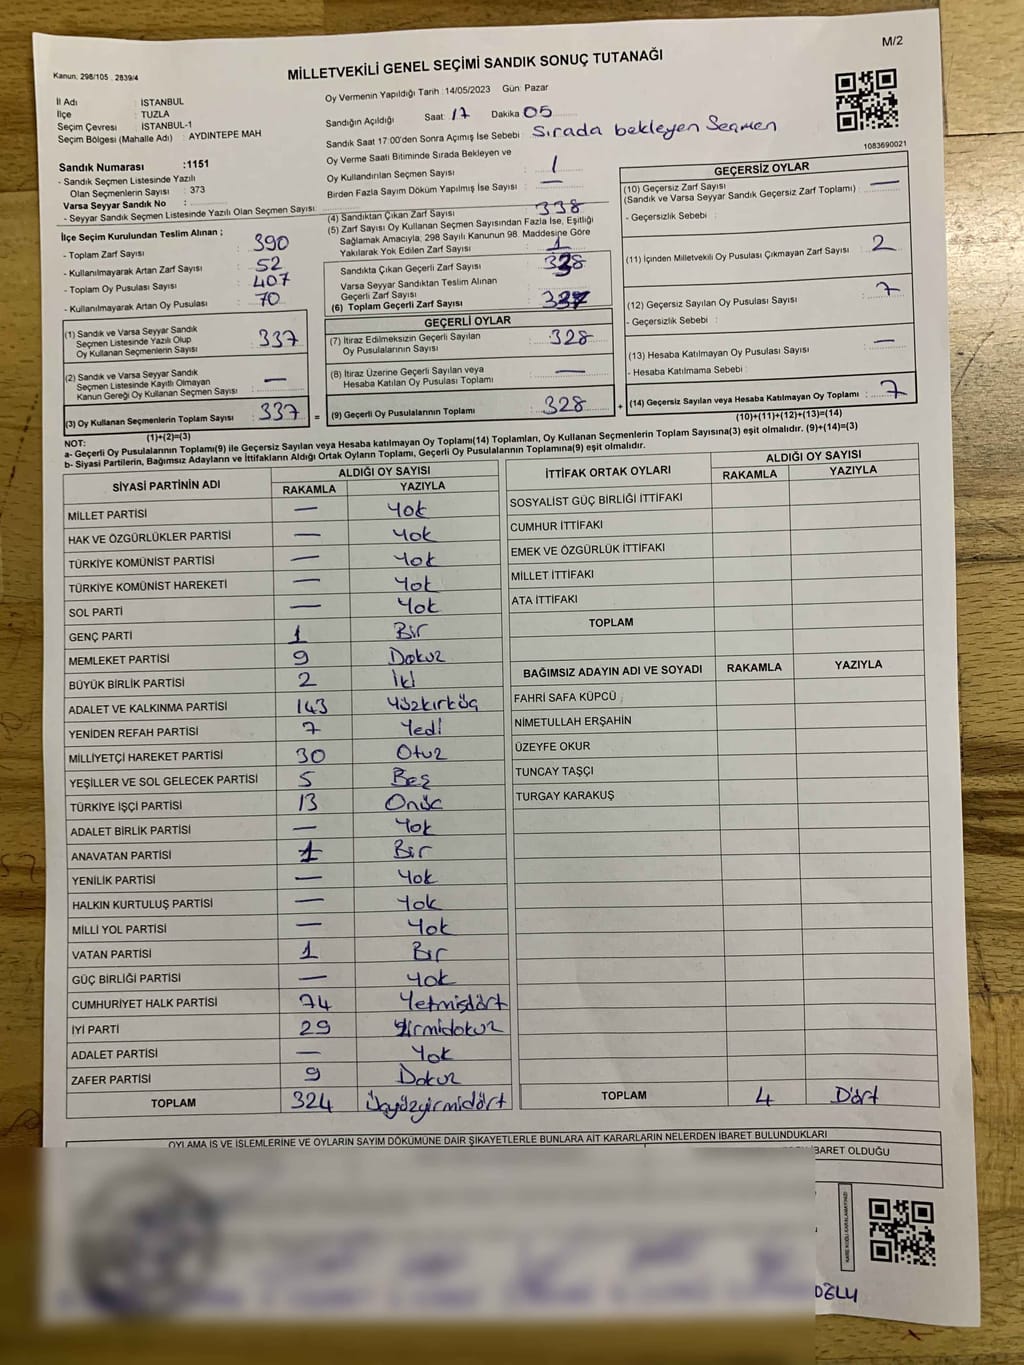 M/2
Kanun: 298/105 , 2839/4
MİLLETVEKİLİ GENEL SEÇİMİ SANDIK SONUÇ TUTANAĞI
İl Adı : İSTANBUL
İlçe : TUZLA
Seçim Çevresi : İSTANBUL-1
Seçim Bölgesi (Mahalle Adı) : AYDINTEPE MAH
Sandık Numarası :1151
- Sandık Seçmen Listesinde Yazılı
Olan Seçmenlerin Sayısı : 373
Varsa Seyyar Sandık No :
- Seyyar Sandık Seçmen Listesinde Yazılı Olan Seçmen Sayısı:
Oy Vermenin Yapıldığı Tarih : 14/05/2023 Gün: Pazar
Sandığın Açıldığı Saat: 17 Dakika 05
Sandık Saat 17:00'den Sonra Açımış İse Sebebi : Sırada bekleyen Seçmen
Oy Verme Saati Bitiminde Sırada Bekleyen ve
Oy Kullandırılan Seçmen Sayısı : 1
Birden Fazla Sayım Döküm Yapılmış İse Sayısı : —
1083690021
İlçe Seçim Kurulundan Teslim Alınan ;
- Toplam Zarf Sayısı : 390
- Kullanılmayarak Artan Zarf Sayısı : 52
- Toplam Oy Pusulası Sayısı : 407
- Kullanılmayarak Artan Oy Pusulası : 70
(1) Sandık ve Varsa Seyyar Sandık
Seçmen Listesinde Yazılı Olup
Oy Kullanan Seçmenlerin Sayısı : 337
(2) Sandık ve Varsa Seyyar Sandık
Seçmen Listesinde Kayıtlı Olmayan
Kanun Gereği Oy Kullanan Seçmen Sayısı : —
(3) Oy Kullanan Seçmenlerin Toplam Sayısı : 337 =
(1)+(2)=(3)
(4) Sandıktan Çıkan Zarf Sayısı : 338
(5) Zarf Sayısı Oy Kullanan Seçmen Sayısından Fazla İse, Eşitliği
Sağlamak Amacıyla, 298 Sayılı Kanunun 98. Maddesine Göre
Yakılarak Yok Edilen Zarf Sayısı : 1
Sandıkta Çıkan Geçerli Zarf Sayısı :
Varsa Seyyar Sandıktan Teslim Alınan
Geçerli Zarf Sayısı :
(6) Toplam Geçerli Zarf Sayısı :
GEÇERLİ OYLAR
(7) İtiraz Edilmeksizin Geçerli Sayılan
Oy Pusulalarının Sayısı : 328
(8) İtiraz Üzerine Geçerli Sayılan veya
Hesaba Katılan Oy Pusulası Toplamı : —
(9) Geçerli Oy Pusulalarının Toplamı : 328 +
GEÇERSİZ OYLAR
(10) Geçersiz Zarf Sayısı : —
(Sandık ve Varsa Seyyar Sandık Geçersiz Zarf Toplamı)
- Geçersizlik Sebebi :
(11) İçinden Milletvekili Oy Pusulası Çıkmayan Zarf Sayısı : 2
(12) Geçersiz Sayılan Oy Pusulası Sayısı : 7
- Geçersizlik Sebebi :
(13) Hesaba Katılmayan Oy Pusulası Sayısı : —
- Hesaba Katılmama Sebebi :
(14) Geçersiz Sayılan veya Hesaba Katılmayan Oy Toplamı : 7
(10)+(11)+(12)+(13)=(14)
NOT:
a- Geçerli Oy Pusulalarının Toplamı(9) ile Geçersiz Sayılan veya Hesaba katılmayan Oy Toplamı(14) Toplamları, Oy Kullanan Seçmenlerin Toplam Sayısına(3) eşit olmalıdır. (9)+(14)=(3)
b- Siyasi Partilerin, Bağımsız Adayların ve İttifakların Aldığı Ortak Oyların Toplamı, Geçerli Oy Pusulalarının Toplamına(9) eşit olmalıdır.
SİYASİ PARTİNİN ADI ALDIĞI OY SAYISI
RAKAMLA YAZIYLA
MİLLET PARTİSİ — Yok
HAK VE ÖZGÜRLÜKLER PARTİSİ — Yok
TÜRKİYE KOMÜNİST PARTİSİ — Yok
TÜRKİYE KOMÜNİST HAREKETİ — Yok
SOL PARTİ — Yok
GENÇ PARTİ 1 Bir
MEMLEKET PARTİSİ 9 Dokuz
BÜYÜK BİRLİK PARTİSİ 2 İki
ADALET VE KALKINMA PARTİSİ 143 Yüzkırküç
YENİDEN REFAH PARTİSİ 7 Yedi
MİLLİYETÇİ HAREKET PARTİSİ 30 Otuz
YEŞİLLER VE SOL GELECEK PARTİSİ 5 Beş
TÜRKİYE İŞÇİ PARTİSİ 13 Onüç
ADALET BİRLİK PARTİSİ — Yok
ANAVATAN PARTİSİ 1 Bir
YENİLİK PARTİSİ — Yok
HALKIN KURTULUŞ PARTİSİ — Yok
MİLLİ YOL PARTİSİ — Yok
VATAN PARTİSİ 1 Bir
GÜÇ BİRLİĞİ PARTİSİ — Yok
CUMHURİYET HALK PARTİSİ 74 Yetmişdört
İYİ PARTİ 29 Yirmidokuz
ADALET PARTİSİ — Yok
ZAFER PARTİSİ 9 Dokuz
TOPLAM 324 Üçyüzyirmidört
İTTİFAK ORTAK OYLARI ALDIĞI OY SAYISI
RAKAMLA YAZIYLA
SOSYALİST GÜÇ BİRLİĞİ İTTİFAKI
CUMHUR İTTİFAKI
EMEK VE ÖZGÜRLÜK İTTİFAKI
MİLLET İTTİFAKI
ATA İTTİFAKI
TOPLAM
BAĞIMSIZ ADAYIN ADI VE SOYADI RAKAMLA YAZIYLA
FAHRİ SAFA KÜPCÜ
NİMETULLAH ERŞAHİN
ÜZEYFE OKUR
TUNCAY TAŞÇI
TURGAY KARAKUŞ
TOPLAM 4 Dört
OYLAMA İŞ VE İŞLEMLERİNE VE OYLARIN SAYIM DÖKÜMÜNE DAİR ŞİKAYETLERLE BUNLARA AİT KARARLARIN NELERDEN İBARET BULUNDUKLARI
İBARET OLDUĞU